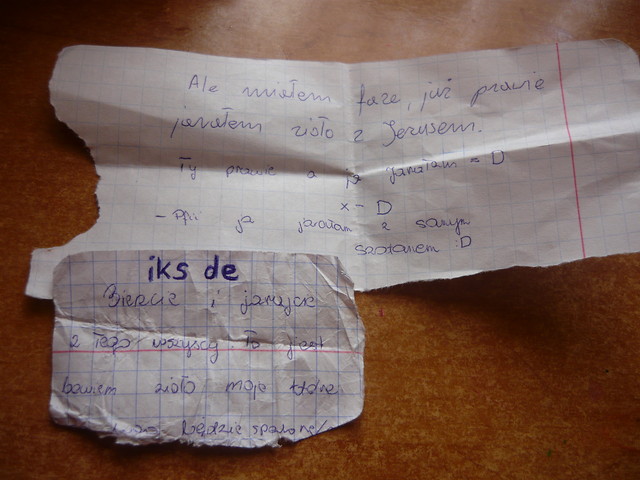 Ale miałem faze, już prawie
jarałem zioło z Jezusem.
Ty prawie a ja jarałam = D
x - D
- Pffi ja jarałam z samym
szatanem :D
iks de
Bierzcie i jarajcie
z tego wszyscy. To jest
bowiem zioło moje które
będzie spalone!